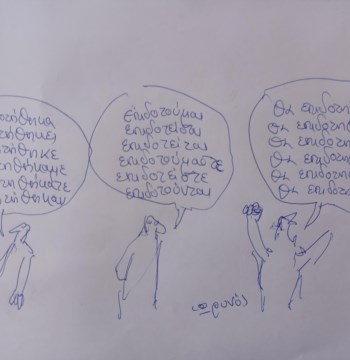 οτήθηκα
οτήθηκες
οτήθηκε
οτηθήκαμε
οτηθήκατε
οτήθηκαν
Επιδοτούμαι
επιδοτείσαι
επιδοτείται
επιδοτούμαστε
επιδοτείστε
επιδοτούνται
Θα επιδοτη
Θα επιδοτη
Θα επιδοτη
Θα επιδοτη
Θα επιδοτη
Θα επιδοτ